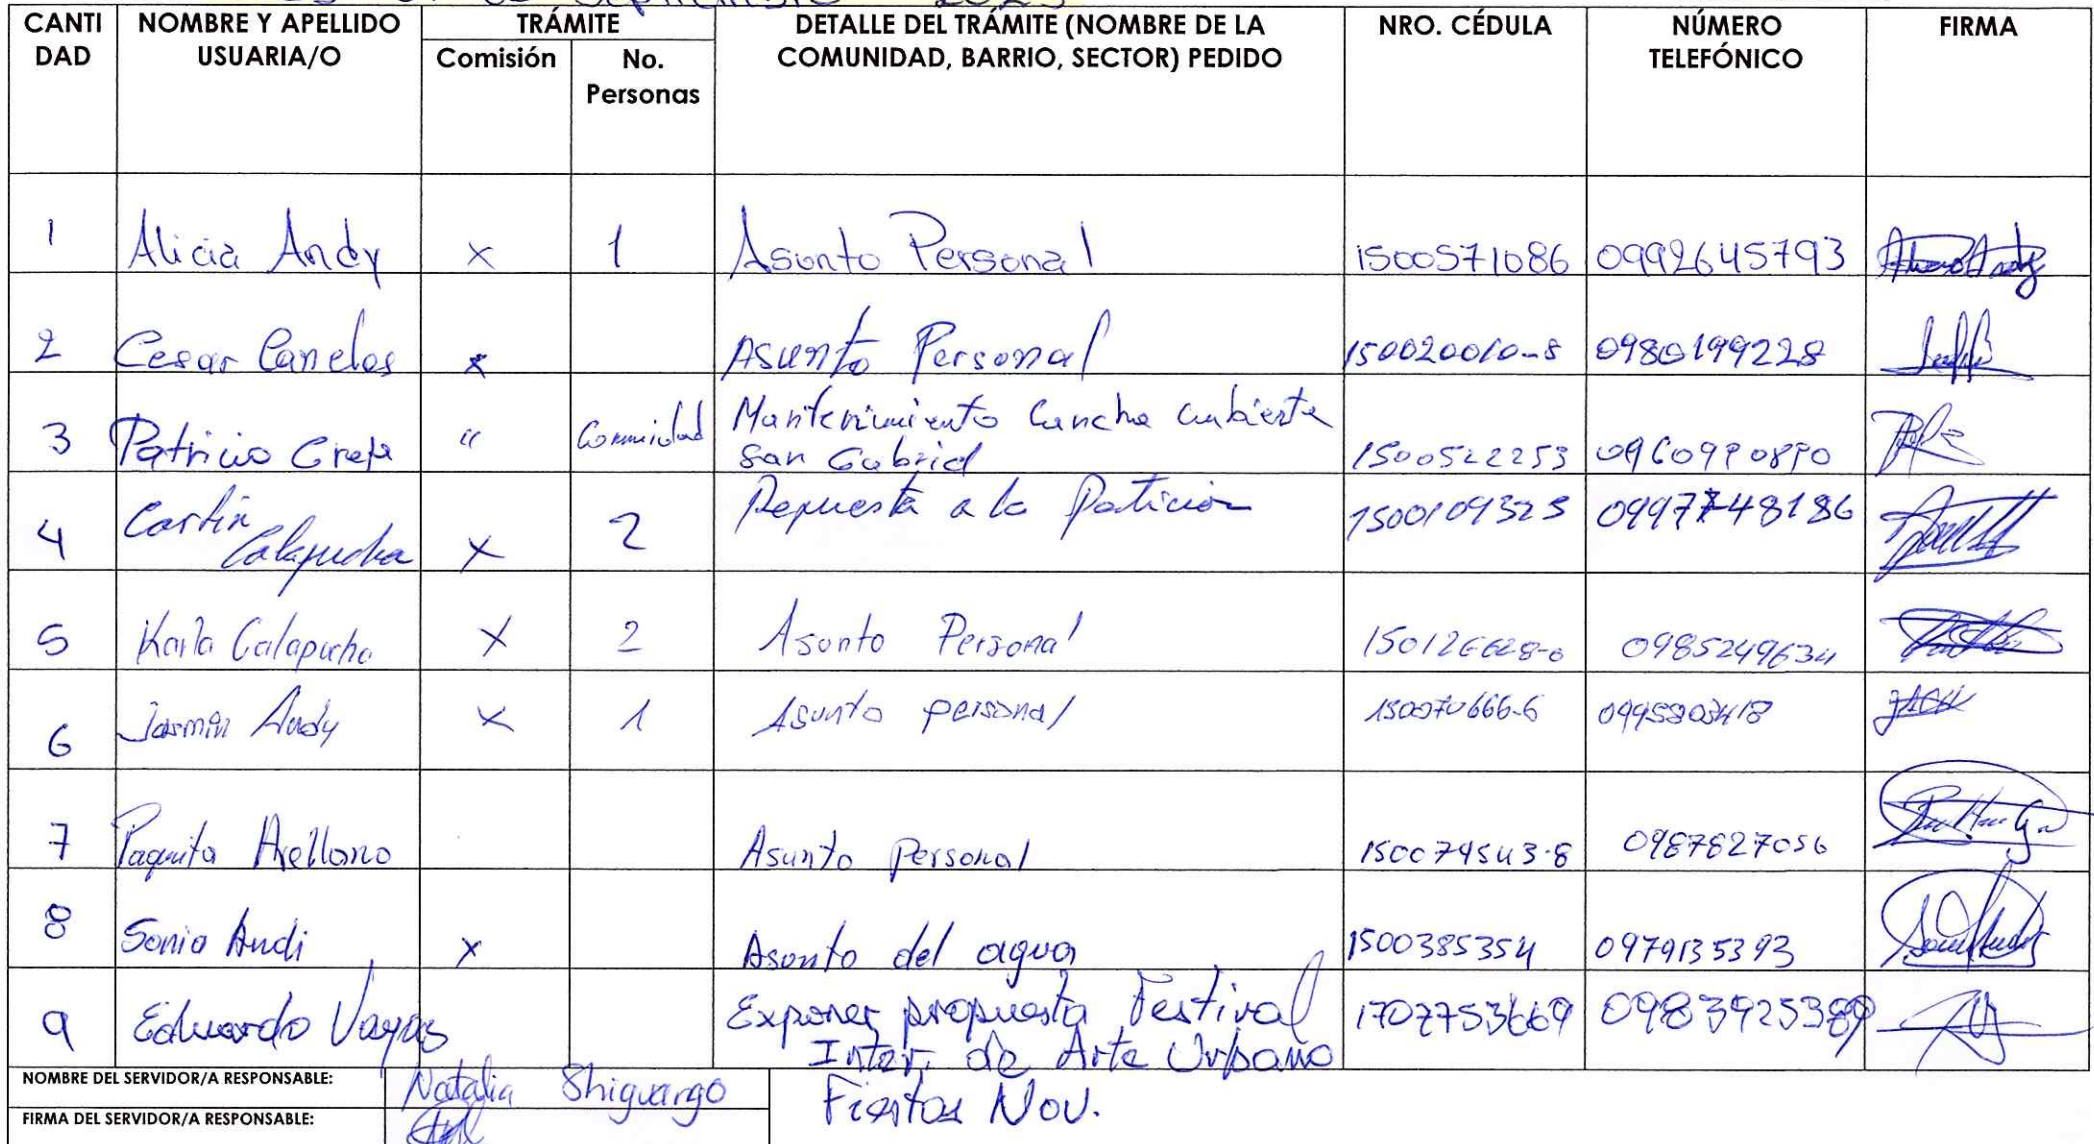 de Septiembre 2023
CANTIDAD NOMBRE Y APELLIDO USUARIA/O TRÁMITE Comisión No. Personas DETALLE DEL TRÁMITE (NOMBRE DE LA COMUNIDAD, BARRIO, SECTOR) PEDIDO NRO. CÉDULA NÚMERO TELEFÓNICO FIRMA
1 Alicia Andy x 1 Asunto Personal 1500571086 0992645793
2 Cesar Canelos x Asunto Personal 150020010-8 0980199228
3 Patricio Grefa " Comunidad Mantenimiento Cancha cubierta
San Gabriel 1500522253
4 Calapucha x 2 a la Petición 0997748186
5 Karla Calapucha x 2 Asunto Personal 150126628-0 0985249634
6 Jasmin Andy x 1 Asunto personal 150070666-6
7 Paquita Arellano Asunto Personal 150074543-8 0987827056
8 Sonia Andi x Asunto del agua 1500385354 0979135393
9 Eduardo Vargas Exponer propuesta Festival
Inter. de Arte Urbano 1702753669 0983925389
Fiestas Nov.
NOMBRE DEL SERVIDOR/A RESPONSABLE: Natalia Shiguango
FIRMA DEL SERVIDOR/A RESPONSABLE: